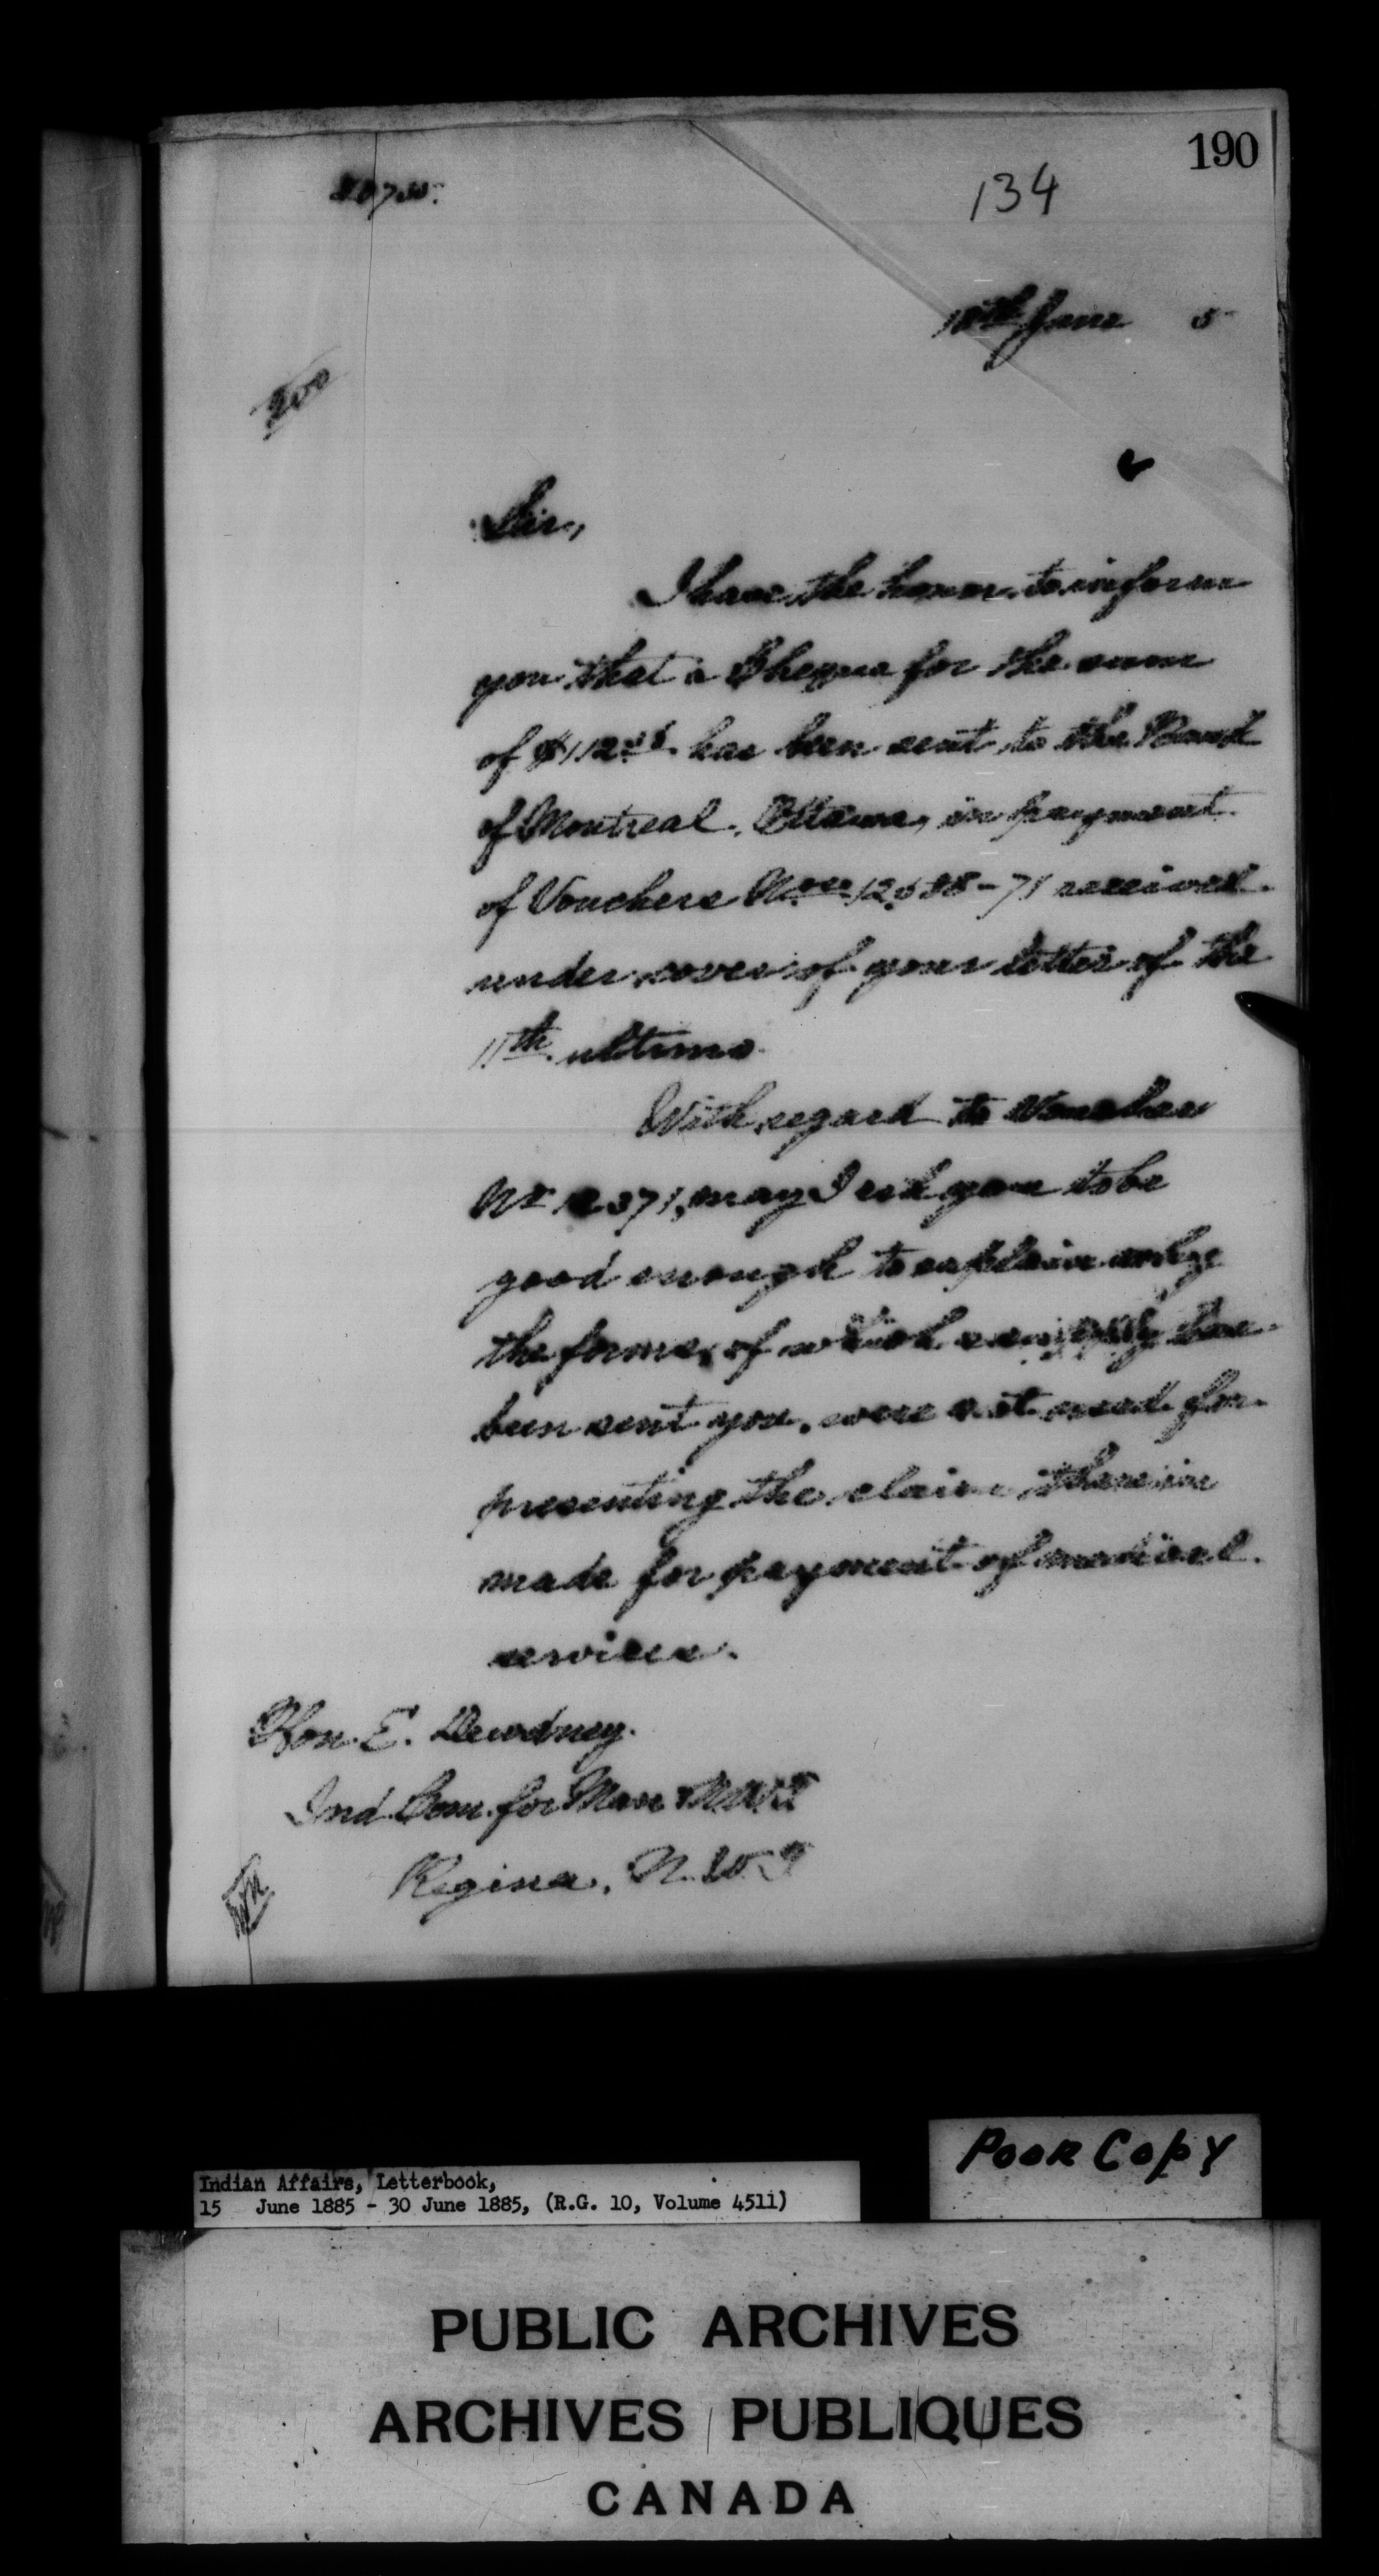 190
134
June 5
Sir,
I have the honor to inform
you that a Cheque for the sum
of has been sent to the Bank
of Montreal, Ottawa, in payment
of Vouchers Nos received
under cover of your letter of the
11th ultimo.
With regard to Voucher
may I ask you to be
good enough to explain why
the forms, of which have
been sent you, were not used for
presenting the claim therein
made for payment of medical
services.
Hon. E. Dewdney.
Ind Com. for Man & N.W.T
Regina, N.W.T
POOR COPY
Indian Affairs, Letterbook,
15 June 1885 - 30 June 1885, (R.G. 10, Volume 4511)
PUBLIC ARCHIVES
ARCHIVES PUBLIQUES
CANADA